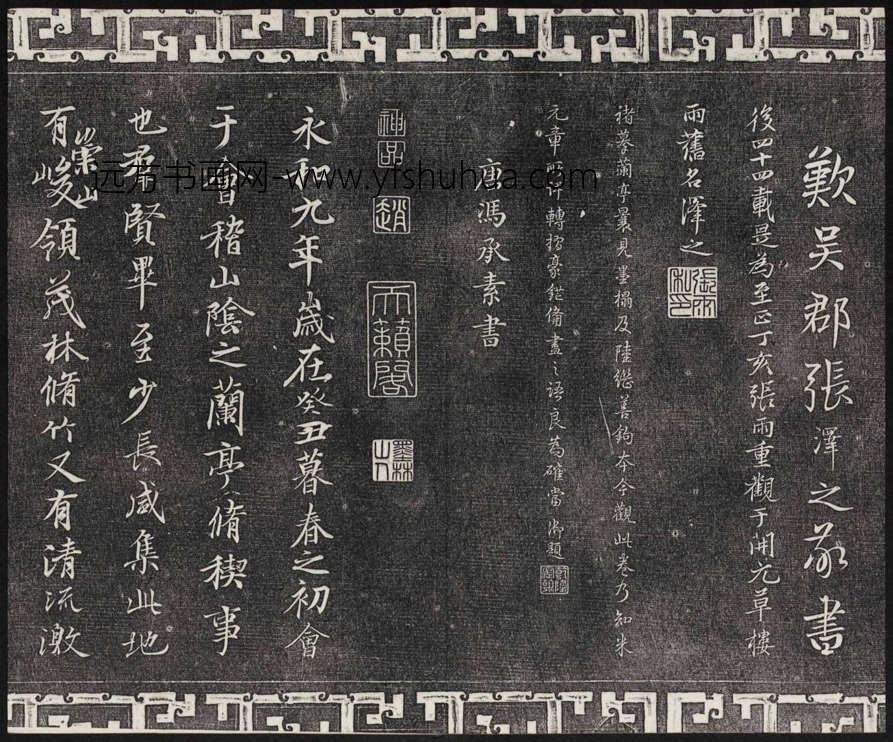 歎吳郡張澤之敬書
後四十四載是為至正丁亥張雨重觀于開元草樓
雨舊名澤之
張雨私印
褚摹蘭亭曩見墨搨及陸繼善鉤本今觀此卷乃知米
元章轉摺豪鋩備盡之語良為確當御題
乾隆
唐馮承素書
神品
趙
天籟閣
墨林山人
永和九年歲在癸丑暮春之初會
于會稽山陰之蘭亭脩稧事
也羣賢畢至少長咸集此地
有崇山峻領茂林脩竹又有清流激
远方书画网-www.yfshuhua.com